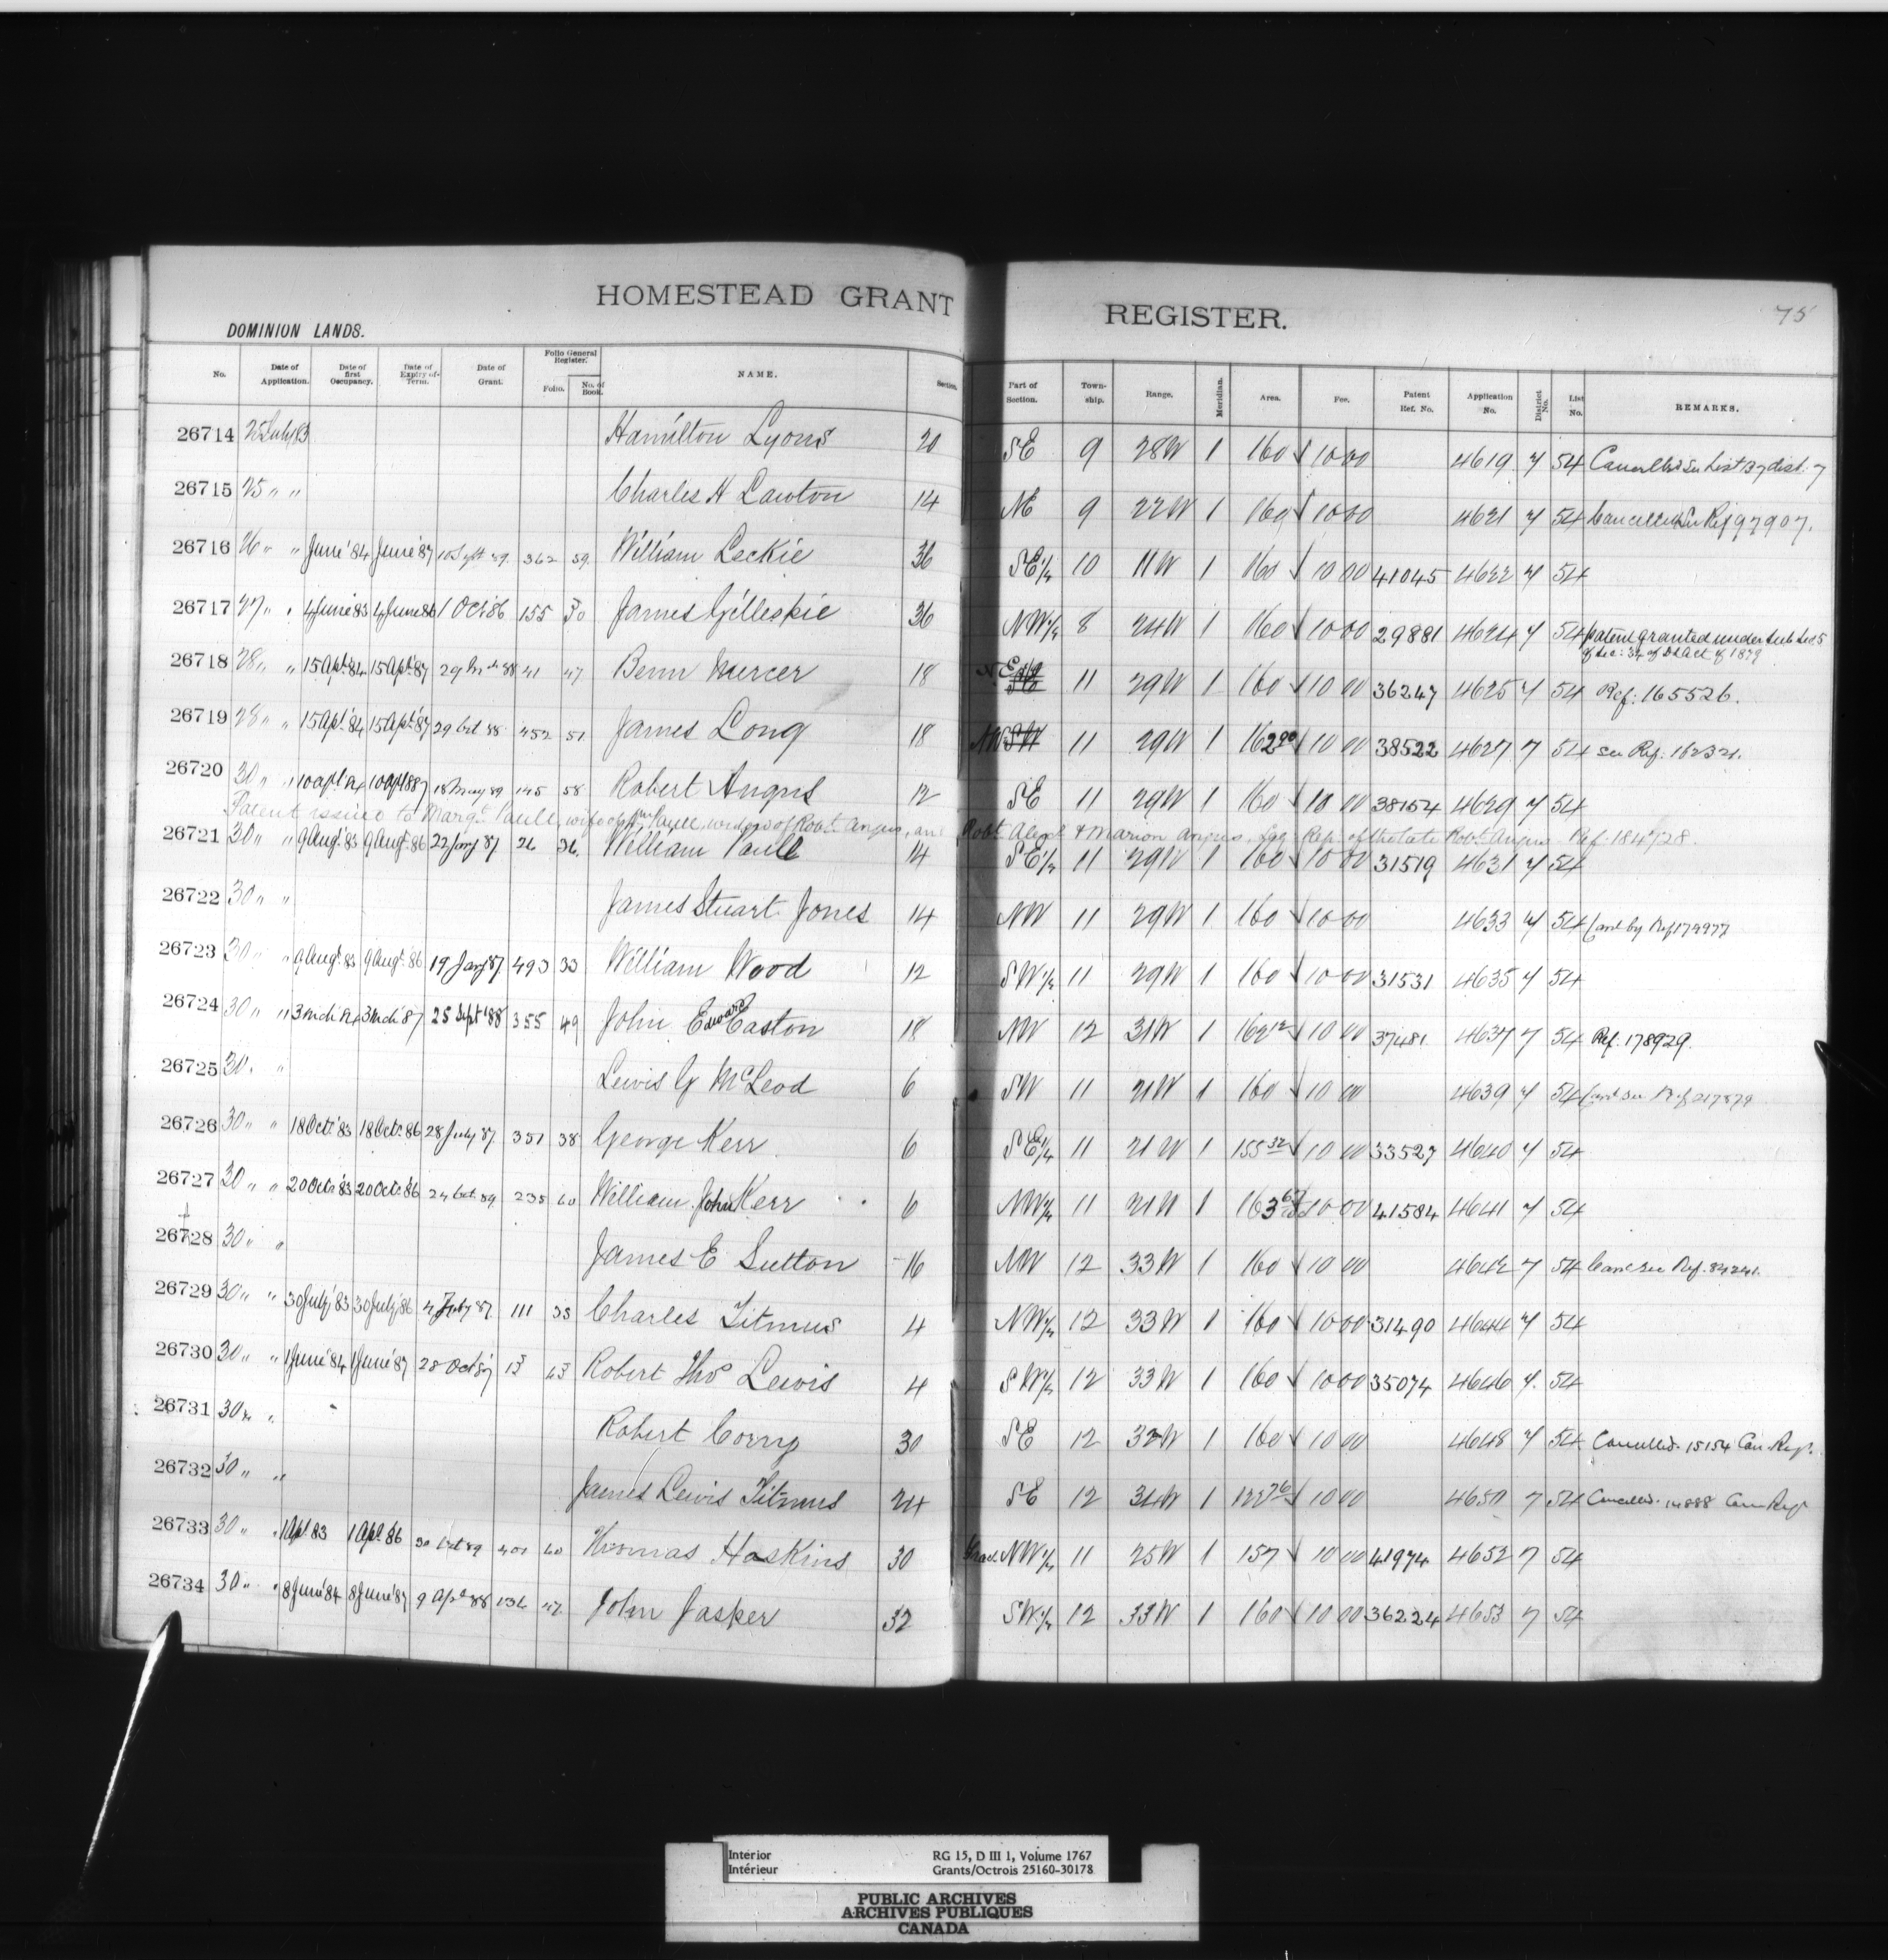 HOMESTEAD GRANT REGISTER. 75
DOMINION LANDS.
No. Date of Application. Date of first Occupancy. Date of Expiry of Term. Date of Grant. Folio General Register. Folio. No. of Book. NAME. Section. Part of Section. Town-ship. Range. Meridian. Area. Fee. Patent Ref. No. Application No. District No. List No. REMARKS.
26714 25 July 83 Hamilton Lyons 20 SE 9 28W 1 160 10 00 4619 7 54 Cancelled See List 27 dist. 7
26715 25 " " Charles H Lawton 14 NE 9 22W 1 160 10 00 4621 7 54 Cancelled See Ref 97907.
26716 26 " " June '84 June '87 10 Sept 89. 362 59. William Leckie 36 SE 1/4 10 11W 1 160 10 00 41045 4622 7 54
26717 27 " " 4 June 83 4 June 86 1 Oct 86 155 30 James Gilleskie 36 NW 1/4 8 24W 1 160 10 00 29881 4624 7 54 patent granted under Sub Sec 5
of Sec: 34 of DL Act of 1879
26718 28 " " 15 Apl. 84 15 Apl. 87 29 88 41 47 Benn Mercer 18 N.E. 11 29W 1 160 10 00 36247 4625 7 54 Ref: 165526.
26719 28 " " 15 Apl. 84 15 Apl. 87 29 Oct 88. 452 51 James Long 18 NW SW 11 29W 1 162 00 10 00 38522 4627 7 54 see Ref. 162321.
26720 30 " " 10 Apl 84 10 Apl 887 18 May 89 145 58 Robert Angus 12 SE 11 29W 1 160 10 00 38154 4629 7 54
Patent issued to Margt. Paull, wife of Wm Paull, widow of Robt. Angus, and Robt. Alexr & Marion Angus, Leg: Rep. of the late Robt. Angus Ref. 184728.
26721 30 " " 9 Aug. 83 9 Aug. 86 22 Jany 87 26 36. William Paull 14 SE 1/4 11 29W 1 160 10 00 31519 4631 7 54
26722 30 " " James Stuart Jones 14 NW 11 29W 1 160 10 00 4633 7 54 Canl by Ref 179977
26723 30 " " 9 Augt. 83 9 Augt. 86 19 Jany 87. 493 33 William Wood 12 SW 1/4 11 29W 1 160 10 00 31531 4635 7 54
26724 30 " " 3 Mch 84 3 Mch '87 25 Sept '88 355 49 John Edward Easton 18 NW 12 31W 1 162 12 10 00 37481 4637 7 54 Ref. 178929.
26725 30. " Lewis G McLeod 6 SW 11 21W 1 160 10 00 4639 7 54 Canl See Ref 217879
26726 30 " " 18 Oct. 83 18 Oct. 86 28 July 87. 351 38 George Kerr 6 SE 1/4 11 21W 1 155 32 10 00 33527 4640 7 54
26727 30 " " 20 Oct. 83 20 Oct. 86 24 Oct 89 235 60 William John Kerr 6 NW 1/4 11 21W 1 163 10 00 41584 4641 7 54
26728 30 " " James E Sutton 16 NW 12 33W 1 160 10 00 4642 7 54 Canc See Ref. 84241.
26729 30 " " 30 July '83 30 July '86 4 July 87. 111 38 Charles Titmus 4 NW 1/4 12 33W 1 160 10 00 31490 4644 7 54
26730 30 " " 1 June '84 1 June '87 28 Oct 87 13 43 Robert Thos Lewis 4 SW 1/4 12 33W 1 160 10 00 35074 4646 7. 54
26731 30 " " Robert Corry 30 SE 12 32W 1 160 10 00 4648 7 54 Cancelled. 15154 Can Regr.
26732 30 " " James Lewis Titmus 24 SE 12 34W 1 122 76 10 00 4650 7 54 Cancelled. 14888 Can Regr
26733 30 " " 1 Apl 83 1 Apl. 86 30 Oct 89 401 60 Thomas Haskins 30 Frac. NW 1/4 11 25W 1 157 10 00 41974 4652 7 54
26734 30 " " 8 June '84 8 June '87 9 Apl 88 136 47. John Jasper 32 SW 1/4 12 33W 1 160 10 00 36224 4653 7 54
Interior
Intérieur
RG 15, D III 1, Volume 1767
Grants/Octrois 25160-30178
PUBLIC ARCHIVES
ARCHIVES PUBLIQUES
CANADA